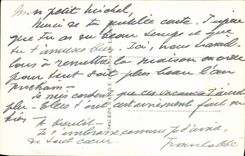 Mon petit Michel,
Merci de ta gentille carte. J'espère
que tu as eu beau temps et que
tu t'amuses bien. Ici, nous travail-
lons à remettre la maison en ordre
pour tout doit plus beau l'an
prochain.
Je suis contente que ces vacances t'aient
plu. Elles t'ont certainement fait du
bien.
A bientôt.
Je t'embrasse comme je t'aime
de tout cœur.